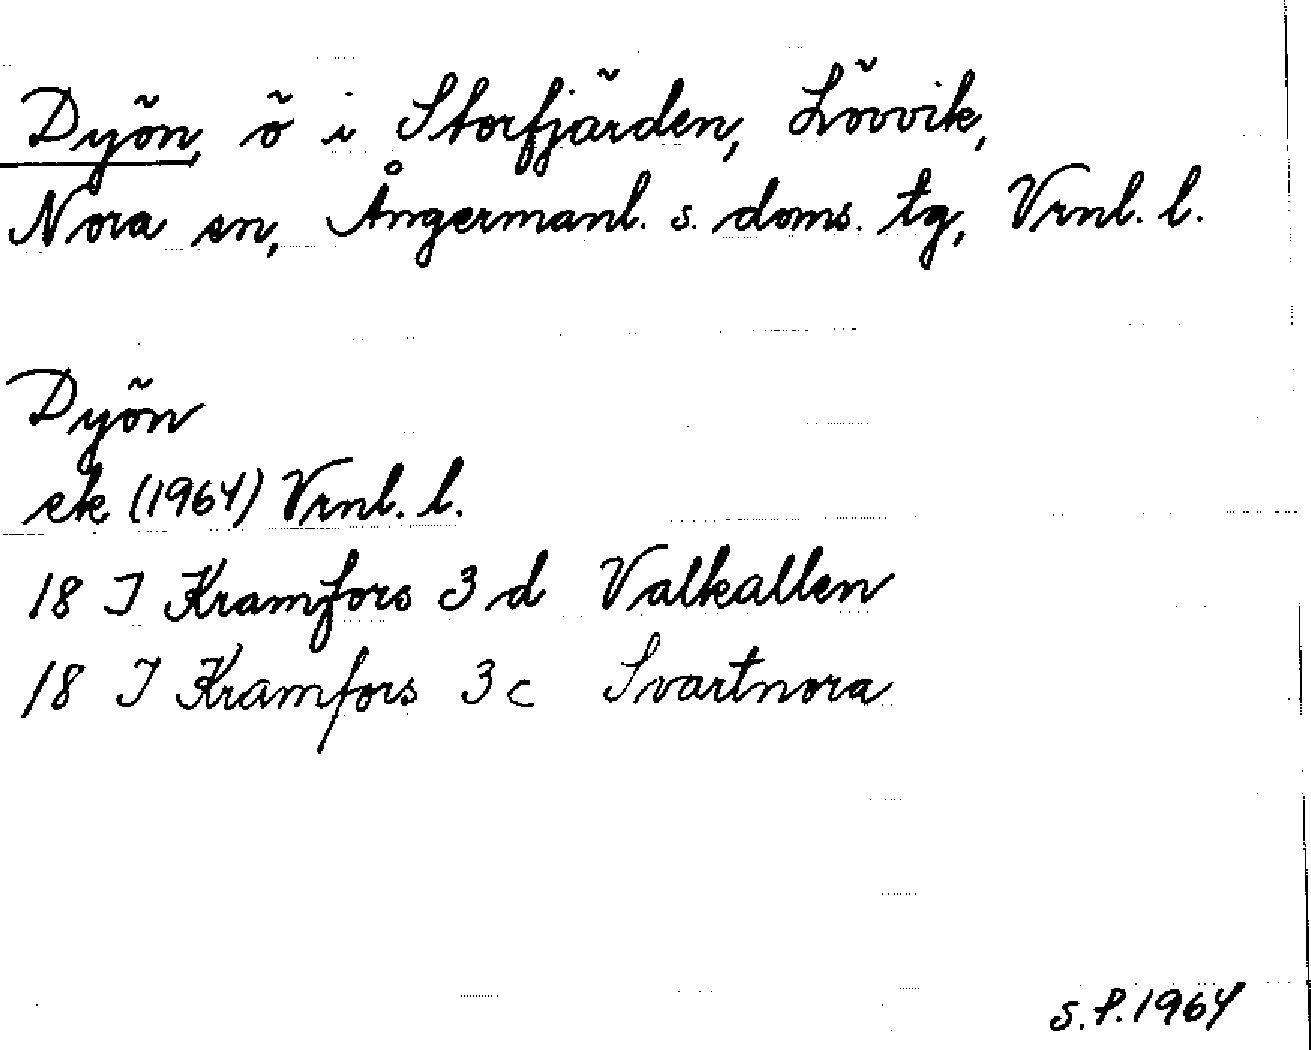 Dyön, ö i Storfjärden, Lövvik,
Nora sn, Ångermanl. s. doms. tg, Vrnl. l.
Dyön
ek (1964) Vrnl. l.
18 I Kramfors 3 d Valkallen
18 I Kramfors 3 c Svartnora
S.P. 1964